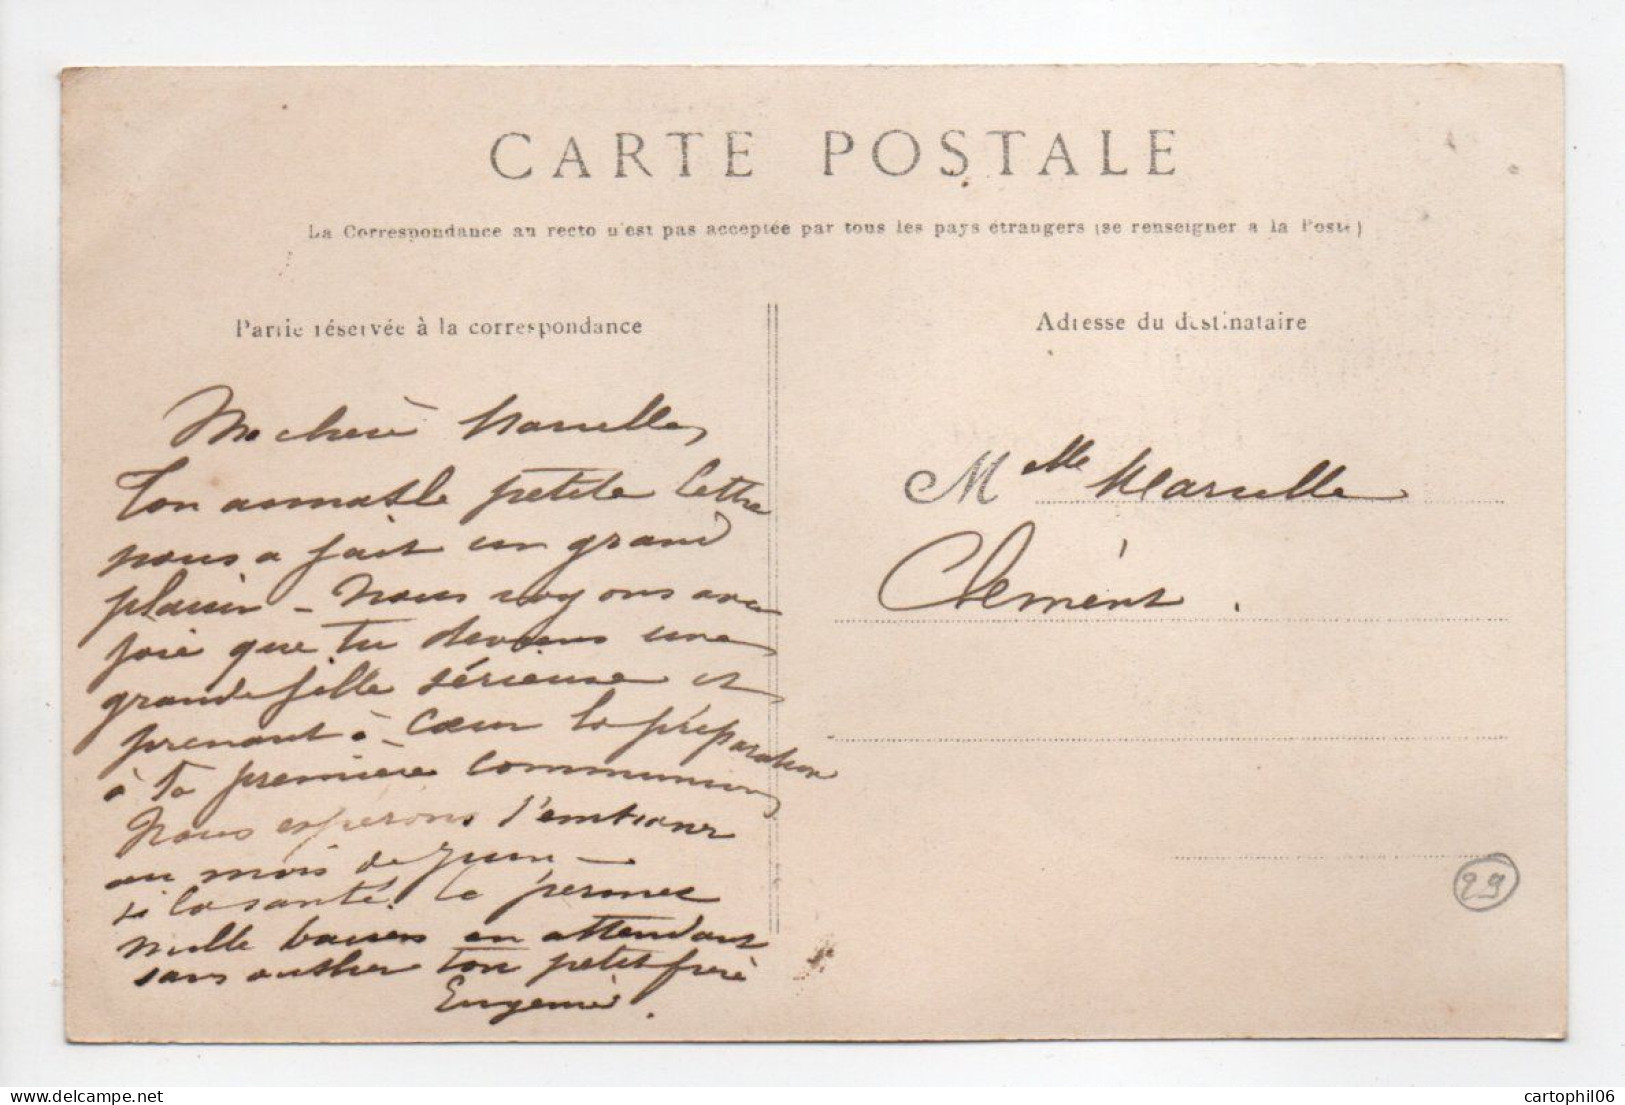 CARTE POSTALE
La Correspondance au recto n'est pas acceptée par tous les pays étrangers (se renseigner a la Poste)
Partie réservée à la correspondance
Ma chère Marcelle,
Ton aimable petite lettre
nous a fait un grand
plaisir - Nous voyons avec
joie que tu deviens une
grande fille sérieuse et
prenant à cœur la préparation
à ta première communion
Nous espérons
au mois de Juin -
si la santé le permet
Mille baisers en attendant
sans oublier ton petit frère
Eugénie.
Adresse du destinataire
Melle Marcelle
Clément.
29
cartophil06